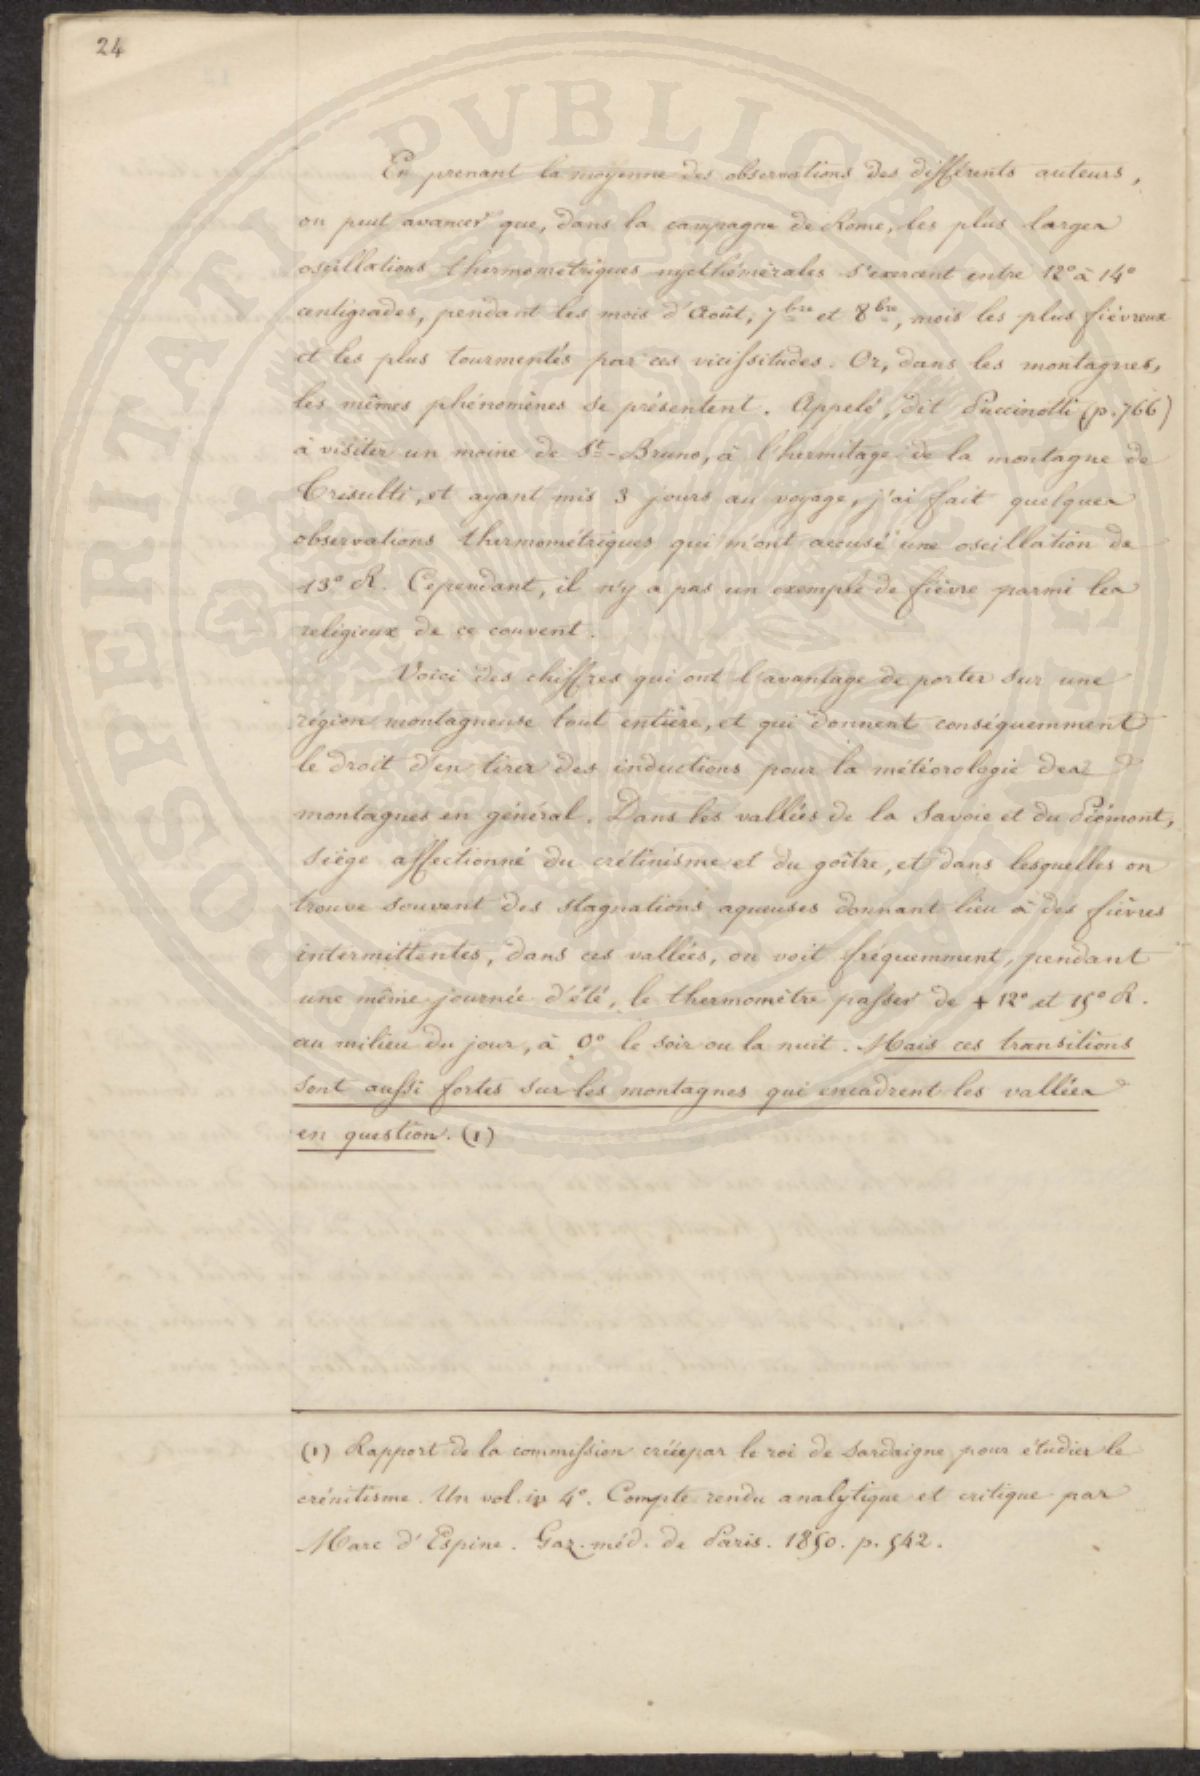 24
En prenant la moyenne des observations des différents auteurs,
on peut avancer que, dans la campagne de Rome, les plus larges
oscillations thermométriques nycthémérales s'exercent entre 12° à 14°
centigrades, pendant les mois d'Août, 7bre et 8bre, mois les plus fiévreux
et les plus tourmentés par ces vicissitudes. Or, dans les montagnes,
les mêmes phénomènes se présentent. Appelé, dit Puccinotti (p. 766)
à visiter un moine de St-Bruno, à l'hermitage de la montagne de
Trisulti, et ayant mis 3 jours au voyage, j'ai fait quelques
observations thermométriques qui m'ont accusé une oscillation de
13° R. Cependant, il n'y a pas un exemple de fièvre parmi les
religieux de ce couvent.
Voici des chiffres qui ont l'avantage de porter sur une
région montagneuse tout entière, et qui donnent conséquemment
le droit d'en tirer des inductions pour la météorologie des
montagnes en général. Dans les vallées de la Savoie et du Piémont,
siège affectionné du crétinisme et du goître, et dans lesquelles on
trouve souvent des stagnations aqueuses donnant lieu à des fièvres
intermittentes, dans ces vallées, on voit fréquemment, pendant
une même journée d'été, le thermomètre passer de + 12° et 15° R.
au milieu du jour, à 0° le soir ou la nuit. Mais ces transitions
sont aussi fortes sur les montagnes qui encadrent les vallées
en question. (1)
(1) Rapport de la commission créée par le roi de Sardaigne pour étudier le
crénitisme. Un vol. in 4°. Compte rendu analytique et critique par
Marc d'Espine. Gaz. méd. de Paris. 1850. p. 542.
PROSPERITATI PVBLICAE